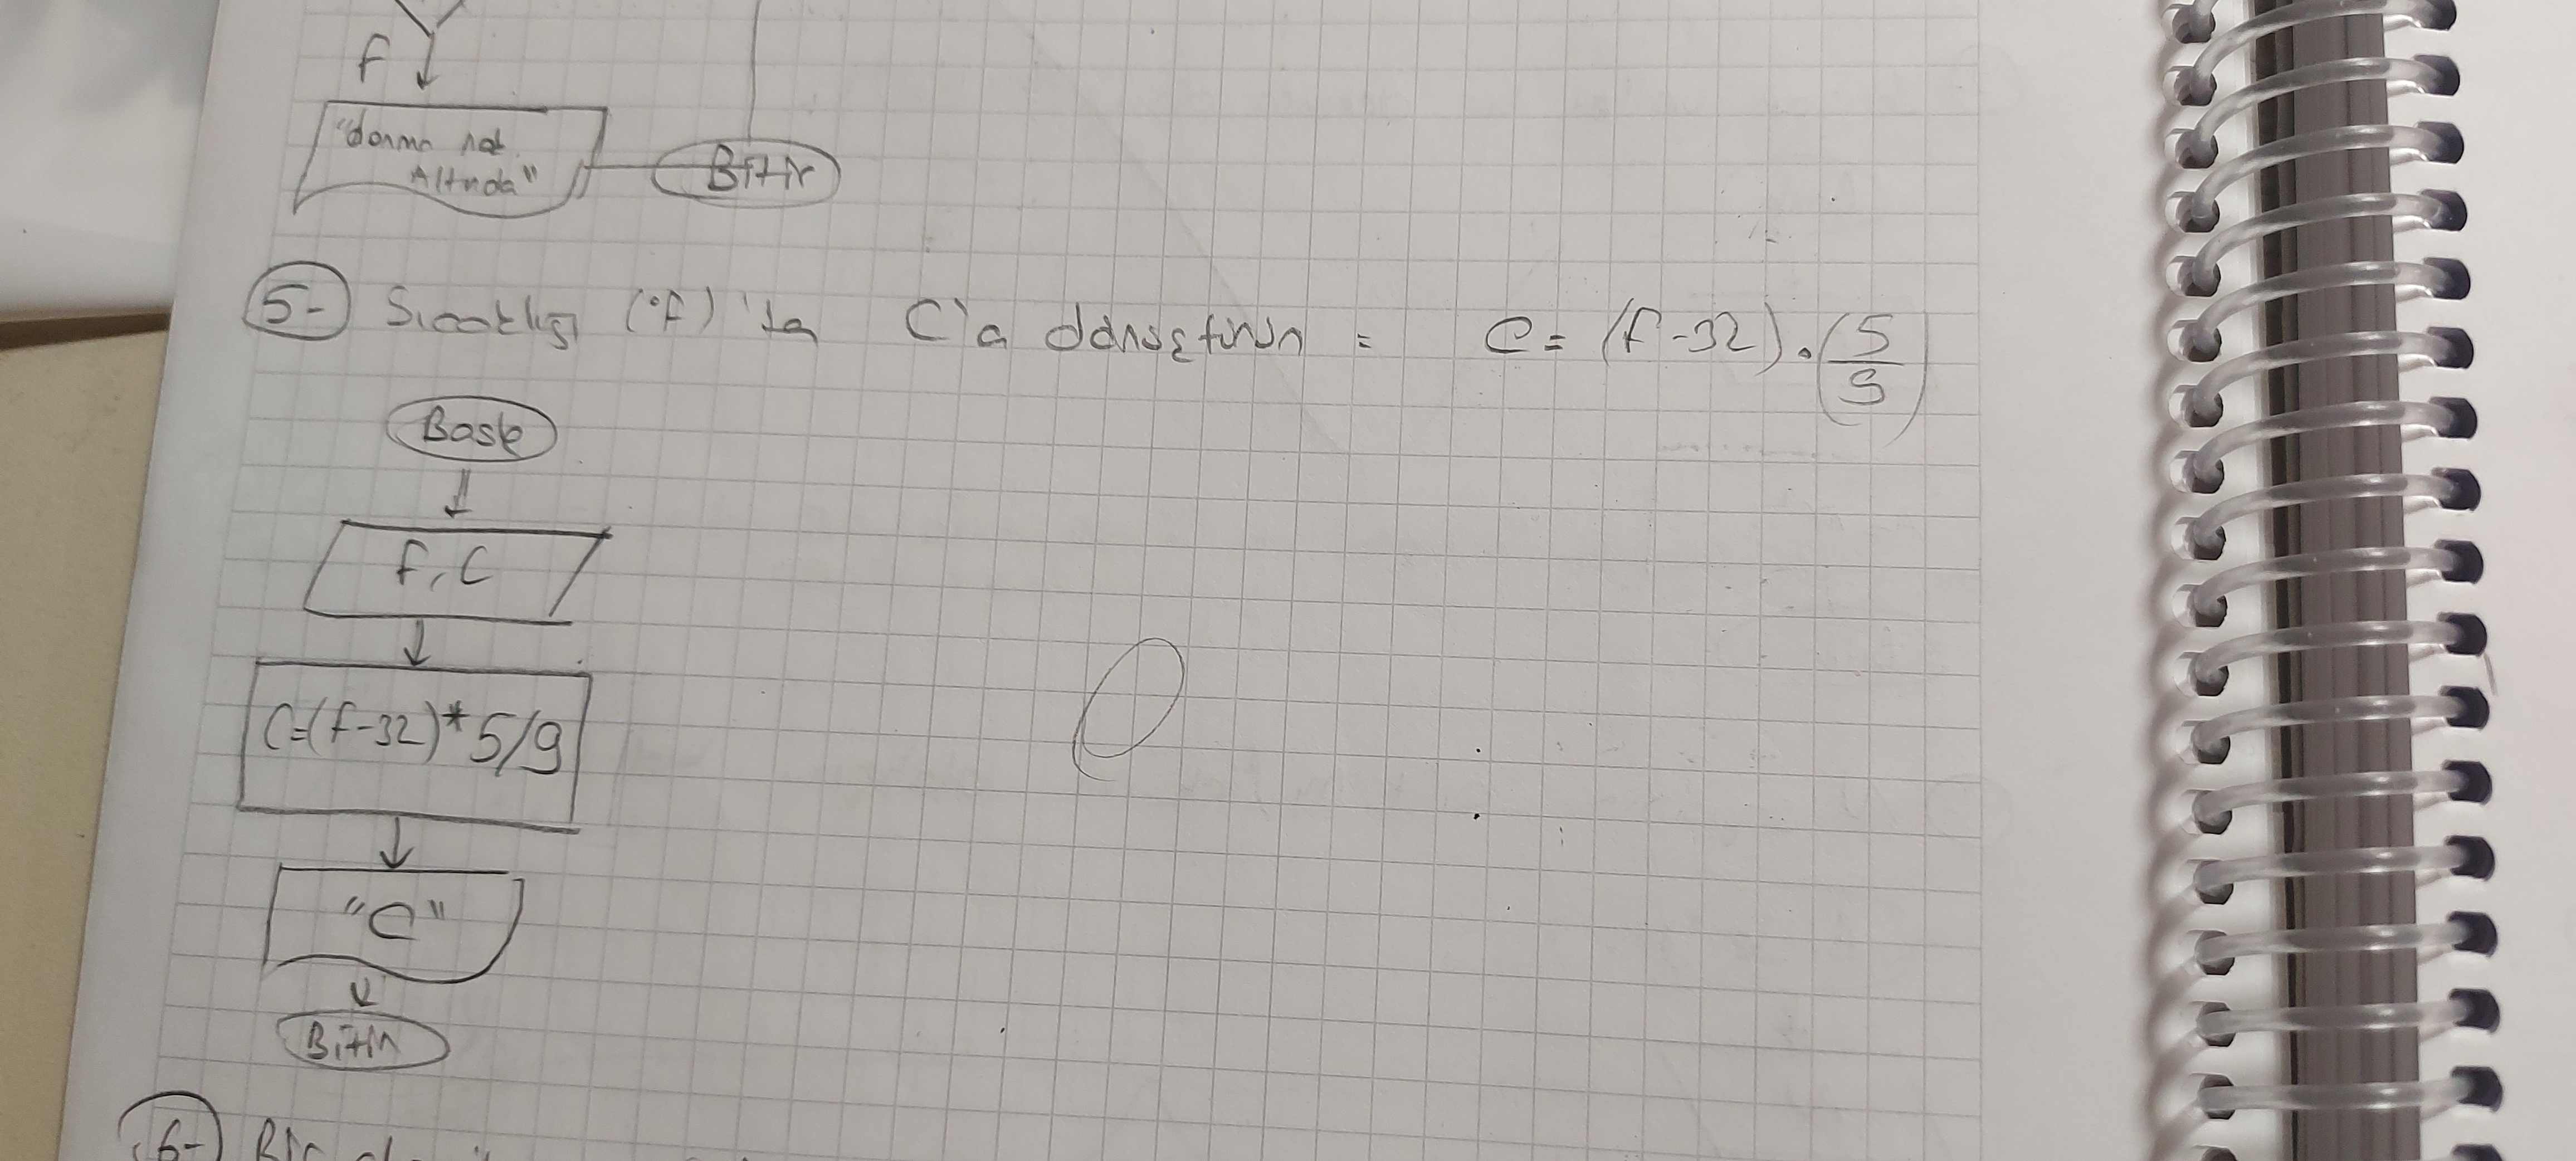 F
"donma nok.
Altında"
Bitir
5- Sıcaklığı (°f)'ta C'a dönüştürün = C = (f-32) . (5/9)
Başla
f, C
C=(f-32)*5/9
"C"
Bitir
6- Bir